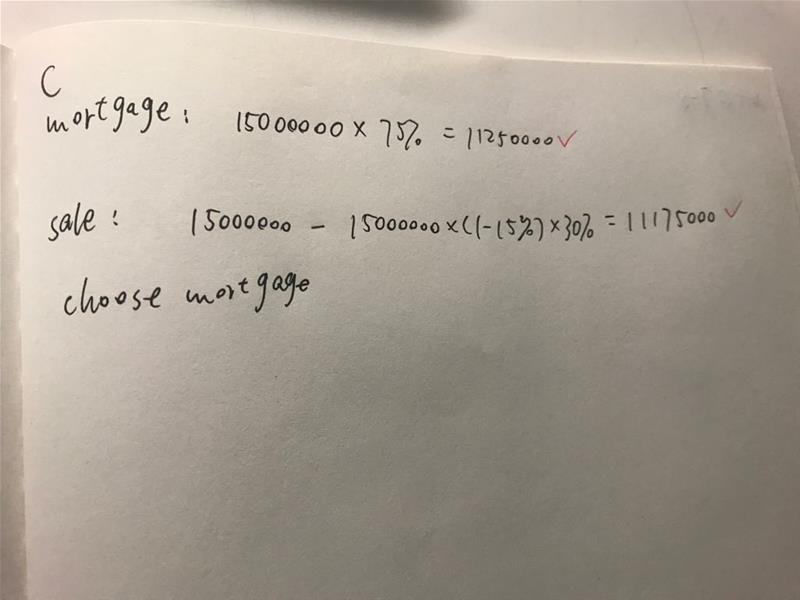 C
mortgage: 15000000 × 75% = 11250000 ✓
sale: 15000000 - 15000000×(1-15%)×30% = 11175000 ✓
choose mortgage